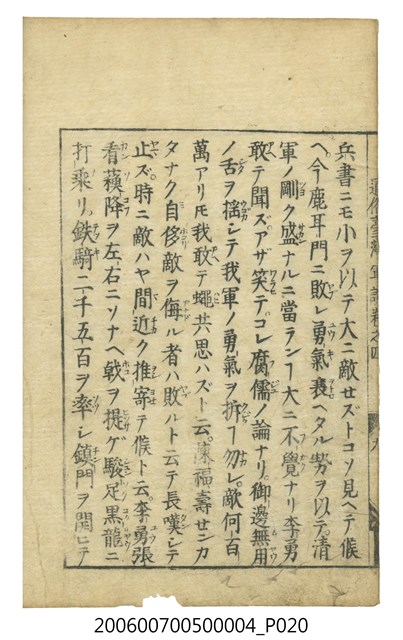 兵書ニモ小ヲ以テ大ニ敵セズトコソ見ヘテ候
ヘ今鹿耳門ニ敗レ勇氣衰ヘタル勢ヲ以テ清
軍ノ剛ク盛ナルニ當ランヿ大ニ不覺ナリ李勇
敢テ聞ズアザ笑テコレ腐儒ノ論ナリ御邊無用
ノ舌ヲ搖シテ我軍ノ勇氣ヲ折ヿ勿レ敵何百
萬アリ𪜈我敢テ蠅共思ハズト云陳福壽センカ
タナク自侈敵ヲ侮ル者ハ敗ルト云テ長嘆シテ
止ズ時ニ敵ハヤ間近ク推寄テ候ト云李勇張
看蘓降ヲ左右ニソナヘ戟ヲ提ゲ駿足黒龍ニ
打乘リ鉄騎二千五百ヲ率シ鎮門ヲ開ヒテ
200600700500004_P020